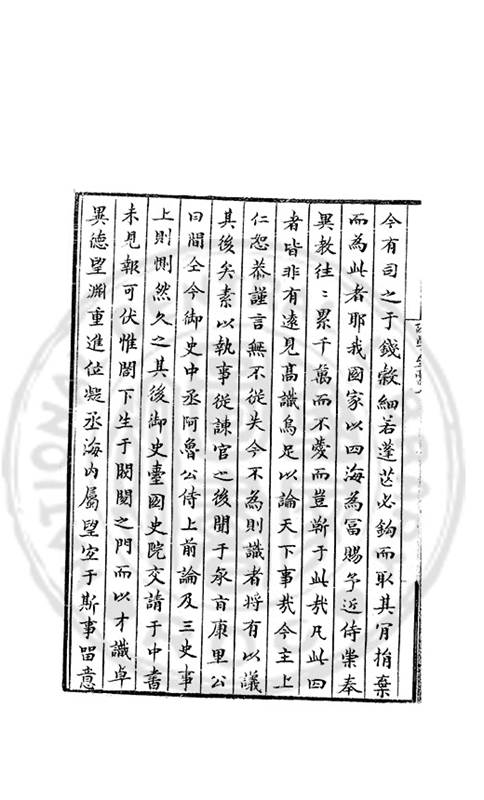 今有司之于錢穀細若蓬芒必鈎而取其肯捐棄
而為此者耶我國家以四海為富賜予近侍崇奉
異教往〻累千萬而不愛而豈靳于此哉凡此四
者皆非有遠見高識烏足以論天下事哉今主上
仁恕恭謹言無不從失今不為則識者將有以議
其後矣素以執事從諫官之後聞于承旨康里公
曰間仝今御史中丞阿魯公侍上前論及三史事
上則惻然久之其後御史臺國史院交請于中書
未見報可伏惟閣下生于閥閱之門而以才識卓
異德望淵重進位凝丞海内屬望宜于斯事留意